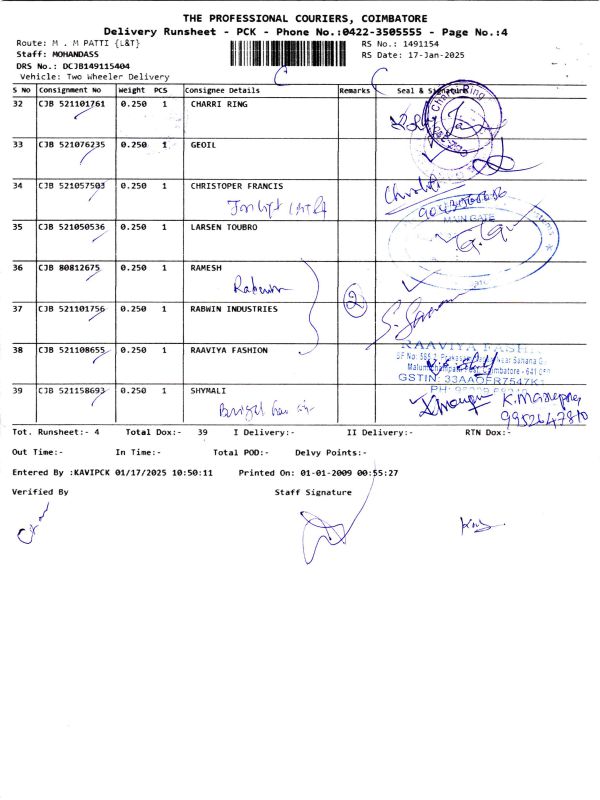 THE PROFESSIONAL COURIERS, COIMBATORE
Delivery Runsheet - PCK - Phone No.:0422-3505555 - Page No.:4
Route: M . M PATTI {L&T}
RS No.: 1491154
Staff: MOHANDASS
RS Date: 17-Jan-2025
DRS No.: DCJB149115404
Vehicle: Two Wheeler Delivery
S No Consignment No Weight PCS Consignee Details Remarks Seal & Signature
32 CJB 521101761 0.250 1 CHARRI RING
33 CJB 521076235 0.250 1 GEOIL
34 CJB 521057503 0.250 1 CHRISTOPER FRANCIS
35 CJB 521050536 0.250 1 LARSEN TOUBRO
MAIN GATE
36 CJB 80812675 0.250 1 RAMESH
Rabwin
2
37 CJB 521101756 0.250 1 RABWIN INDUSTRIES
38 CJB 521108655 0.250 1 RAAVIYA FASHION
RAAVIYA FASHI
GSTIN: 33AAOFR7547K1
39 CJB 521158693 0.250 1 SHYMALI
9952647810
Tot. Runsheet:- 4 Total Dox:- 39 I Delivery:- II Delivery:- RTN Dox:-
Out Time:- In Time:- Total POD:- Delvy Points:-
Entered By :KAVIPCK 01/17/2025 10:50:11 Printed On: 01-01-2009 00:55:27
Verified By Staff Signature